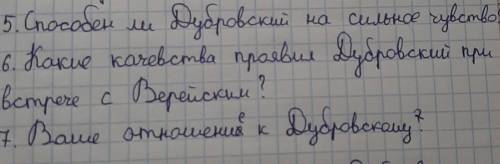 5. Способен ли Дубровский на сильное чувство?
6. Какие качевства проявил Дубровский при
встрече с Верейским?
7. Ваше отношение к Дубровскому?